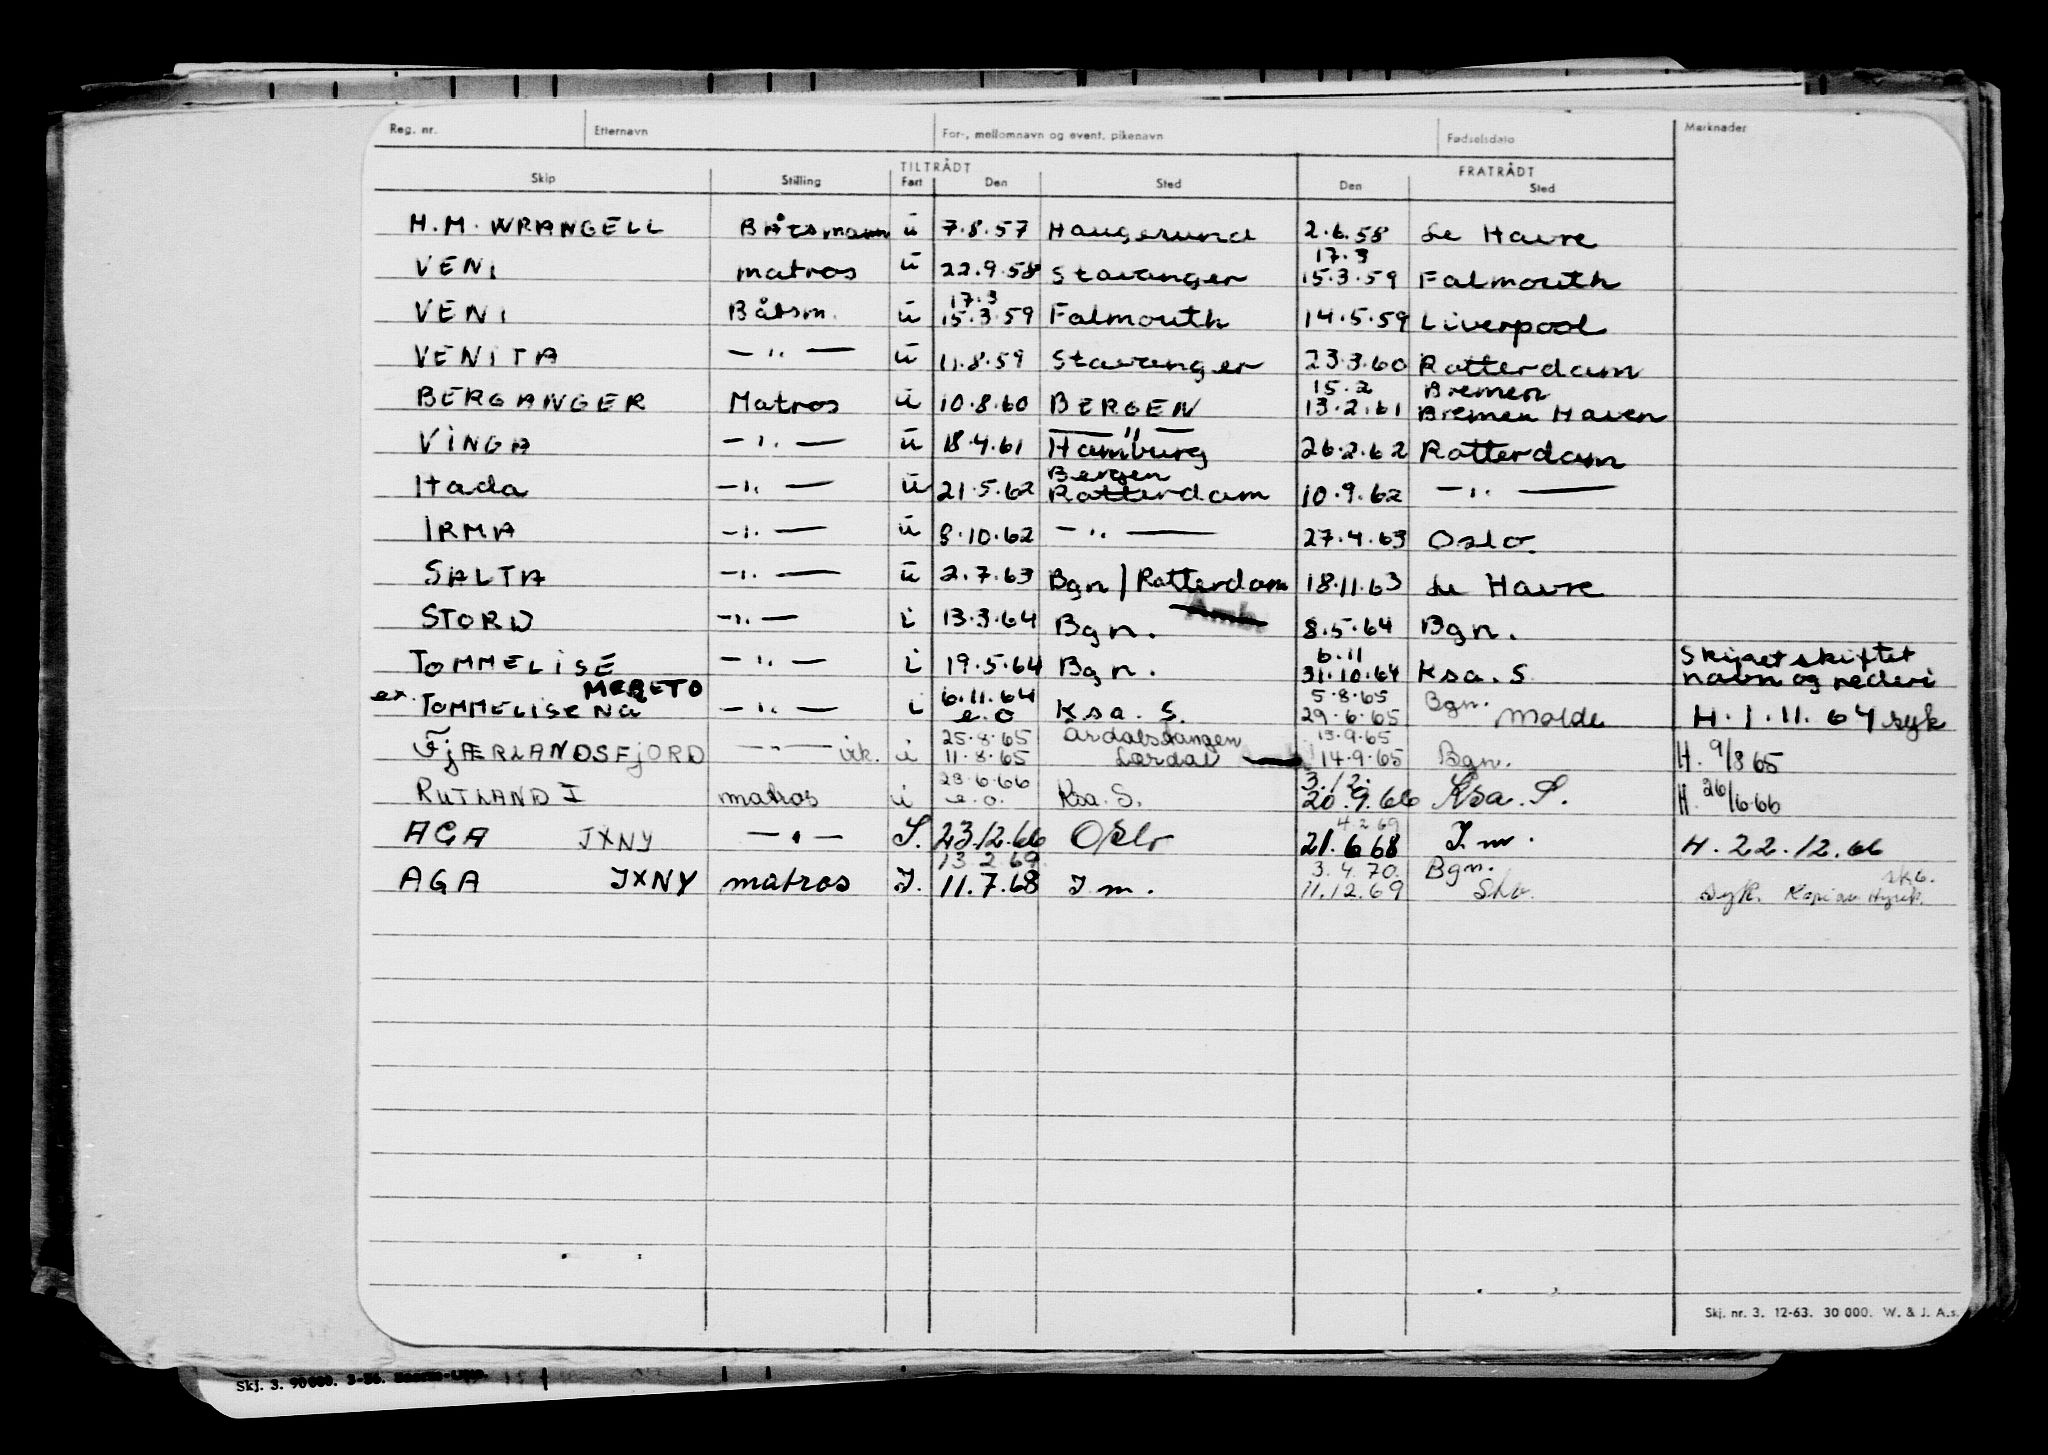 Reg. nr. Etternavn For-, mellomnavn og event. pikenavn Fødselsdato Merknader
TILTRÅDT FRATRÅDT
Skip Stilling Fart Den Sted Den Sted
H.M. WRANGELL Båtsmann ü 7.8.57 Haugesund 2.6.58 Le Havre
17.3
VENI matros ü 22.9.58 Stavanger 15.3.59 Falmouth
17.3
VENI Båtsm. ü 15.3.59 Falmouth 14.5.59 Liverpool
VENITA — ,, — ü 11.8.59 Stavanger 23.3.60 Rotterdam
15.2 Bremen
BERGANGER Matros ü 10.8.60 BERGEN 13.2.61 Bremen Haven
— ,, —
VINGA — ,, — ü 18.4.61 Hamburg 26.2.62 Rotterdam
Bergen
Hada — ,, — ü 21.5.62 Rotterdam 10.9.62 — ,, —
IRMA — ,, — ü 8.10.62 — ,, — 27.4.63 Oslo.
SALTA — ,, — ü 2.7.63 Bgn / Rotterdam 18.11.63 Le Havre
STORD — ,, — i 13.3.64 Bgn. 8.5.64 Bgn.
6.11 Skipet skiftet
TOMMELISE — ,, — i 19.5.64 Bgn. 31.10.64 Ksa. S navn og rederi
MERETO 6.11.64 5.8.65 Bgn.
ex. TOMMELISE NA — ,, — i e.o Ksa. S. 29.6.65 Molde H. 1.11.64 syk
25.8.65 Årdalstangen 13.9.65
FJÆRLANDSFJORD — ,, — vik. i 11.8.65 Lærdal 14.9.65 Bgn. H. 9/8 65
23.6.66 3.12.
RUTLAND I matros i e.o. Ksa. S. 20.9.66 Ksa. S. H. 26/6 66
4.2.69
AGA JXNY — " — I. 23.12.66 Oslo 21.6.68 I.m. H. 22.12.66
13.2.69 3.4.70. Bgn.
AGA JXNY matros I. 11.7.68 I.m. 11.12.69 syk. Kopi av Hyrek.
Skj. nr. 3. 12-63. 30 000. W. & J. A.s.
Skj. 3. 90 000. 3-56.